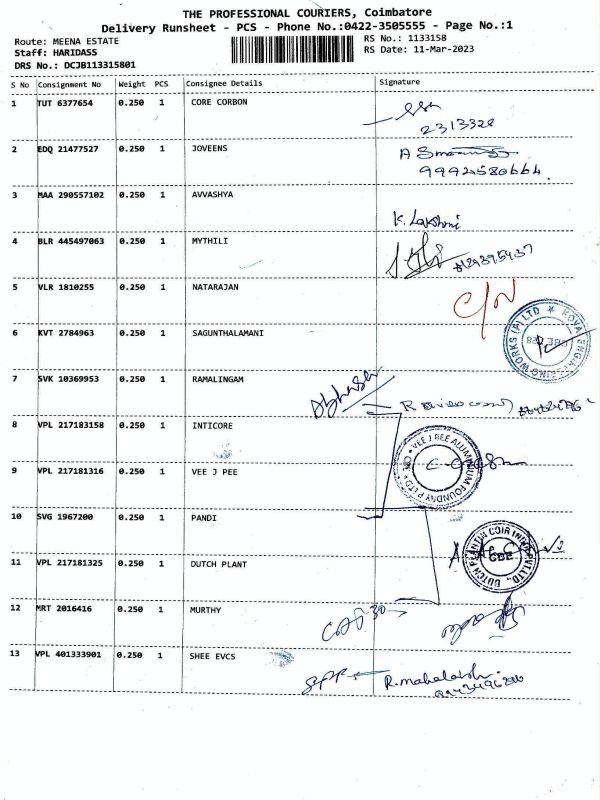 THE PROFESSIONAL COURIERS, Coimbatore
Delivery Runsheet - PCS - Phone No.:0422-3505555 - Page No.:1
Route: MEENA ESTATE
RS No.: 1133158
Staff: HARIDASS
RS Date: 11-Mar-2023
DRS No.: DCJB113315801
S No Consignment No Weight PCS Consignee Details Signature
1 TUT 6377654 0.250 1 CORE CORBON
2313328
2 EDQ 21477527 0.250 1 JOVEENS
9994580664
3 MAA 290557102 0.250 1 AVVASHYA
K. Lakshmi
4 BLR 445497063 0.250 1 MYTHILI
5 VLR 1810255 0.250 1 NATARAJAN
C/N
6 KVT 2784963 0.250 1 SAGUNTHALAMANI
7 SVK 10369953 0.250 1 RAMALINGAM
8 VPL 217183158 0.250 1 INTICORE
VEE J PEE ALUMINIUM FOUNDRY P LTD
9 VPL 217181316 0.250 1 VEE J PEE
10 SVG 1967200 0.250 1 PANDI
11 VPL 217181325 0.250 1 DUTCH PLANT
12 MRT 2016416 0.250 1 MURTHY
13 VPL 401333901 0.250 1 SHEE EVCS
R. mahalakshmi